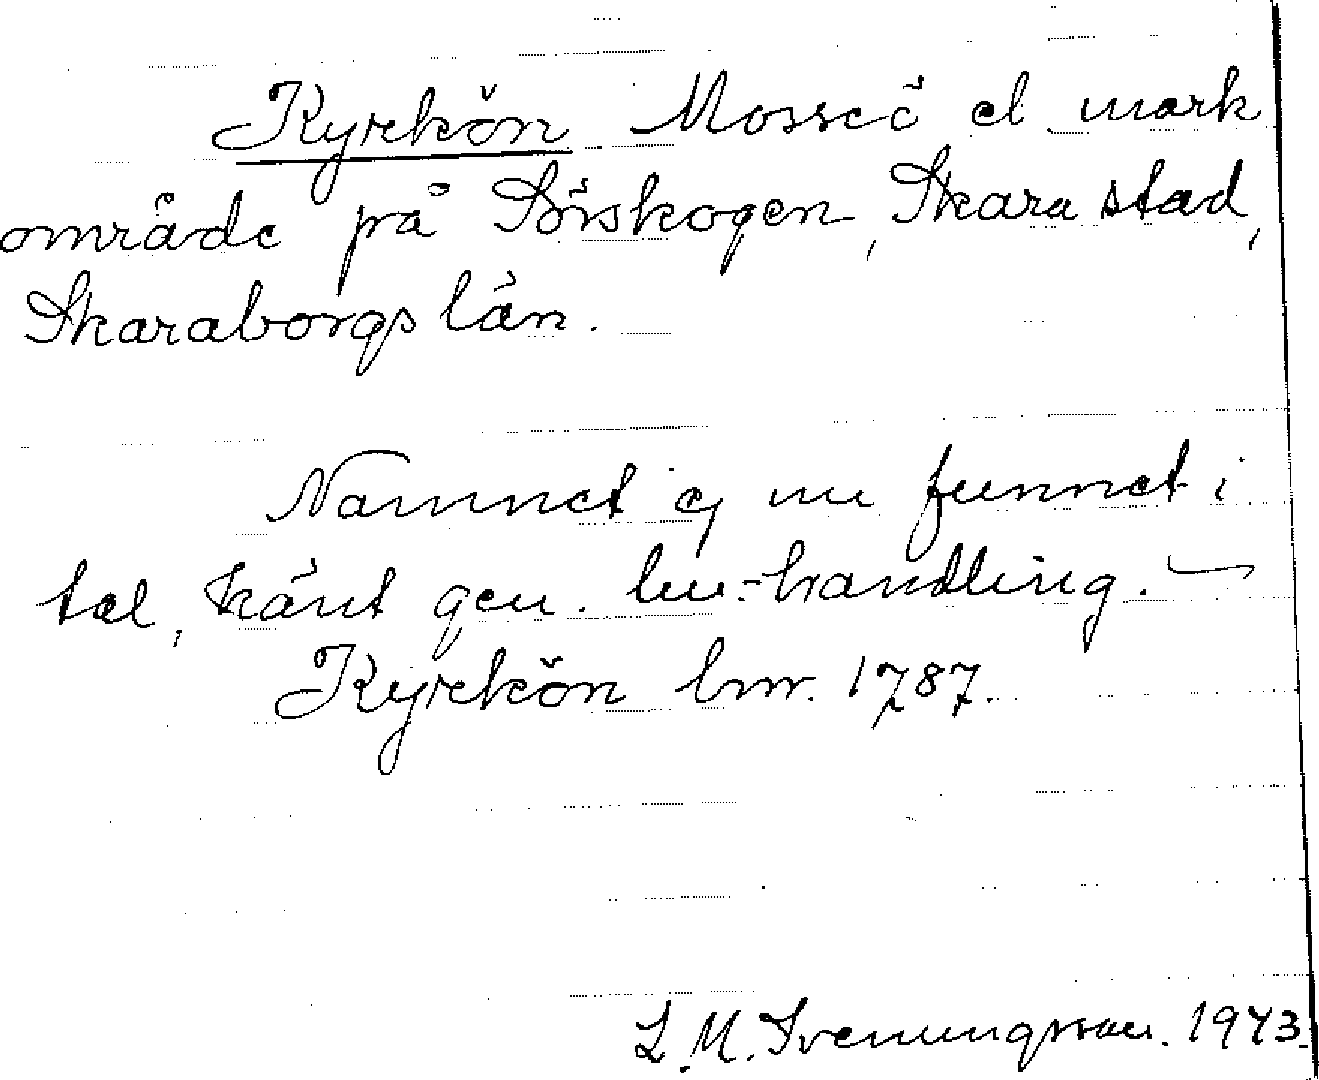 Kyrkön Mosseö el mark
område på Sörskogen, Skara stad,
Skaraborgs län.
Namnet ej nu funnet i
tal, känt gen. lm-handling. —
Kyrkön lmr. 1787.
L. M. Svenungsson. 1943.